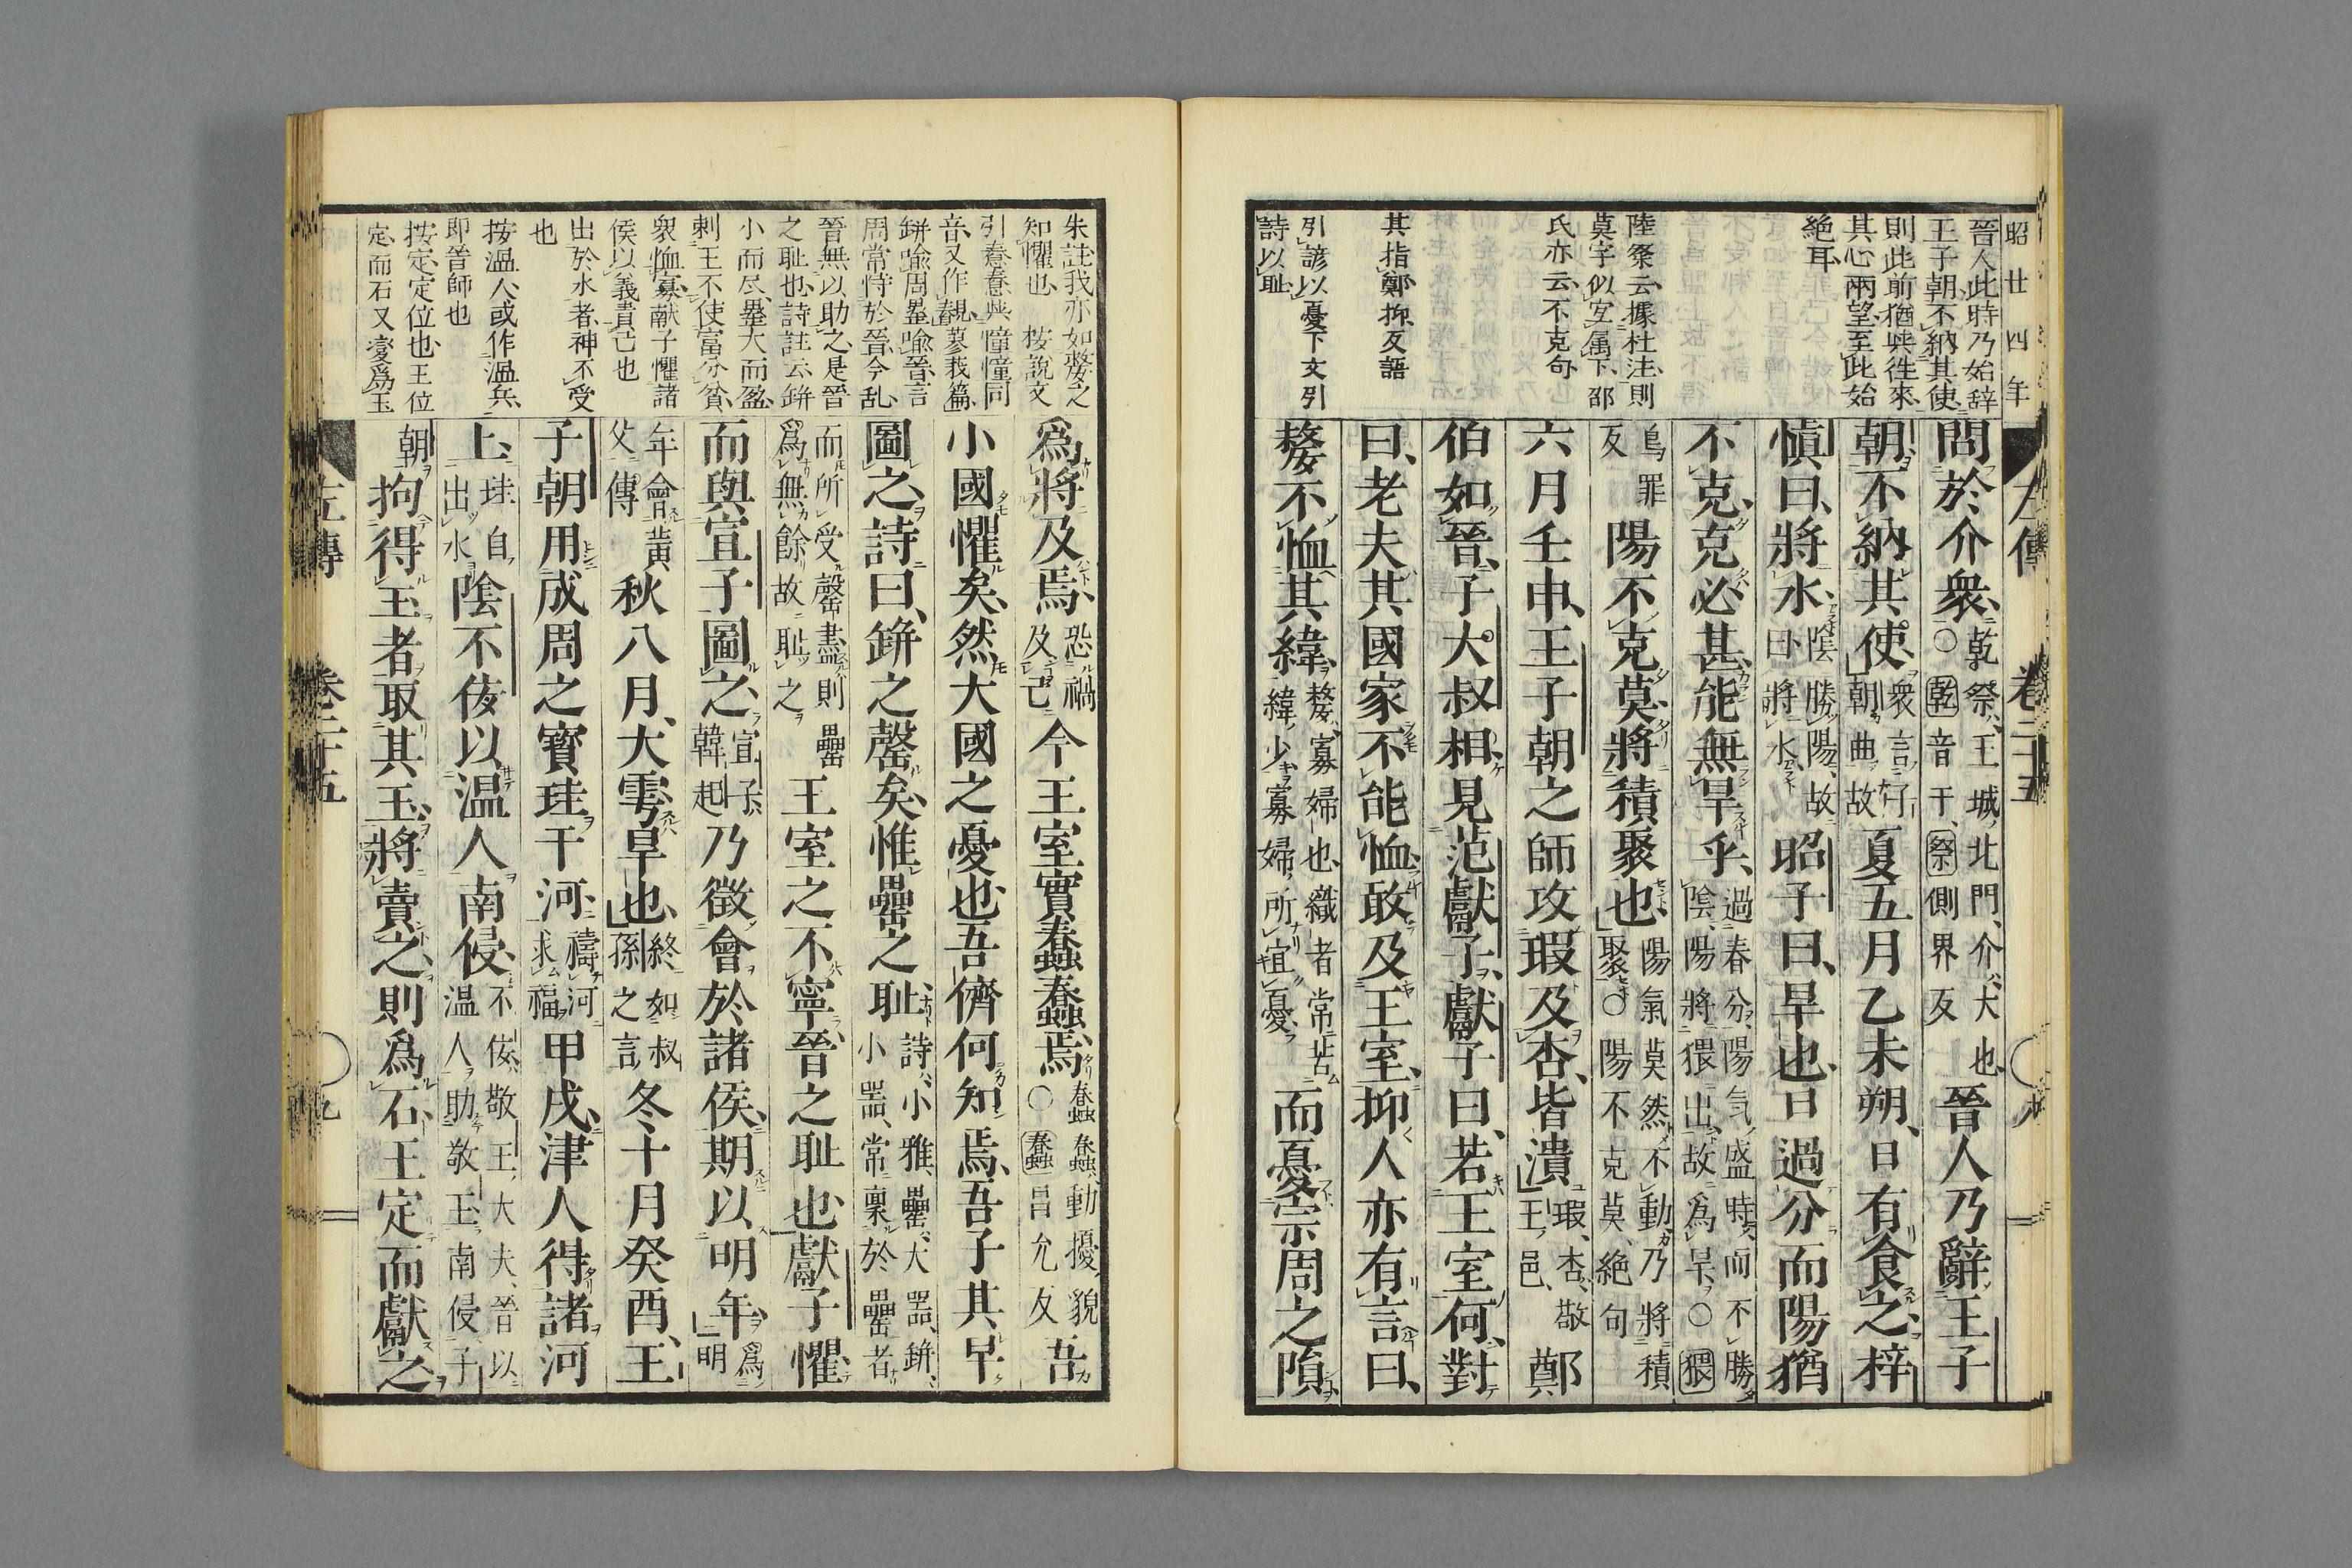 昭廿四年
晉人此時乃始辞
王子朝不納其使
則此前猶與往來
其心兩望至此始
絶耳
陸粲云據杜注則
莫字似宜属下邵
氏亦云不克句
其指鄭抑反語
引諺以憂下文引
詩以耻
左傳 卷二十五 九
問於介衆乾祭王城北門介大也〇乾音干祭側界反晉人乃辭王子
朝不納其使衆言子朝曲故夏五月乙未朔日有食之梓
愼曰將水陰勝陽故曰將水昭子曰旱也日過分而陽猶
不克克必甚能無旱乎過春分陽氣盛時而不勝陰陽將猥出故爲旱〇猥
烏罪反陽不克莫將積聚也陽氣莫然不動乃將積聚〇陽不克莫絶句
六月壬申王子朝之師攻瑕及杏皆潰瑕杏敬王邑鄭
伯如晉子大叔相見范獻子獻子曰若王室何對
曰老夫其國家不能恤敢及王室抑人亦有言曰
嫠不恤其緯嫠寡婦也織者常苦緯少寡婦所宜憂而憂宗周之隕
朱註我亦如嫠之
知懼也 按說文
引惷惷與憧憧同
音又作蠢蓼莪篇
缾喻周罍喻晉言
周常恃於晉今乱
晉無以助之是晉
之耻也詩註云缾
小而尽罍大而盈
刺王不使富分貧
衆恤寡献子懼諸
侯以義責己也
出於水者神不受
也
按温人或作温兵
即晉師也
按定定位也王位
定而石又変爲玉
爲將及焉恐禍及己今王室實蠢蠢焉蠢蠢動擾貌〇蠢昌允反吾
小國懼矣然大國之憂也吾儕何知焉吾子其早
圖之詩曰缾之罄矣惟罍之耻詩小雅罍大器缾小器常稟於罍者
而所受罄盡則罍爲無餘故耻之王室之不寧晉之耻也獻子懼
而與宣子圖之宣子韓起乃徵會於諸侯期以明年爲明
年會黃父傳秋八月大雩旱也終如叔孫之言冬十月癸酉王
子朝用成周之寳珪于河禱河求福甲戌津人得諸河
上珪自出水陰不佞以温人南侵不佞敬王大夫晉以温人助敬王南侵子
朝拘得玉者取其玉將賣之則爲石王定而獻之
左傳 卷二十五 九